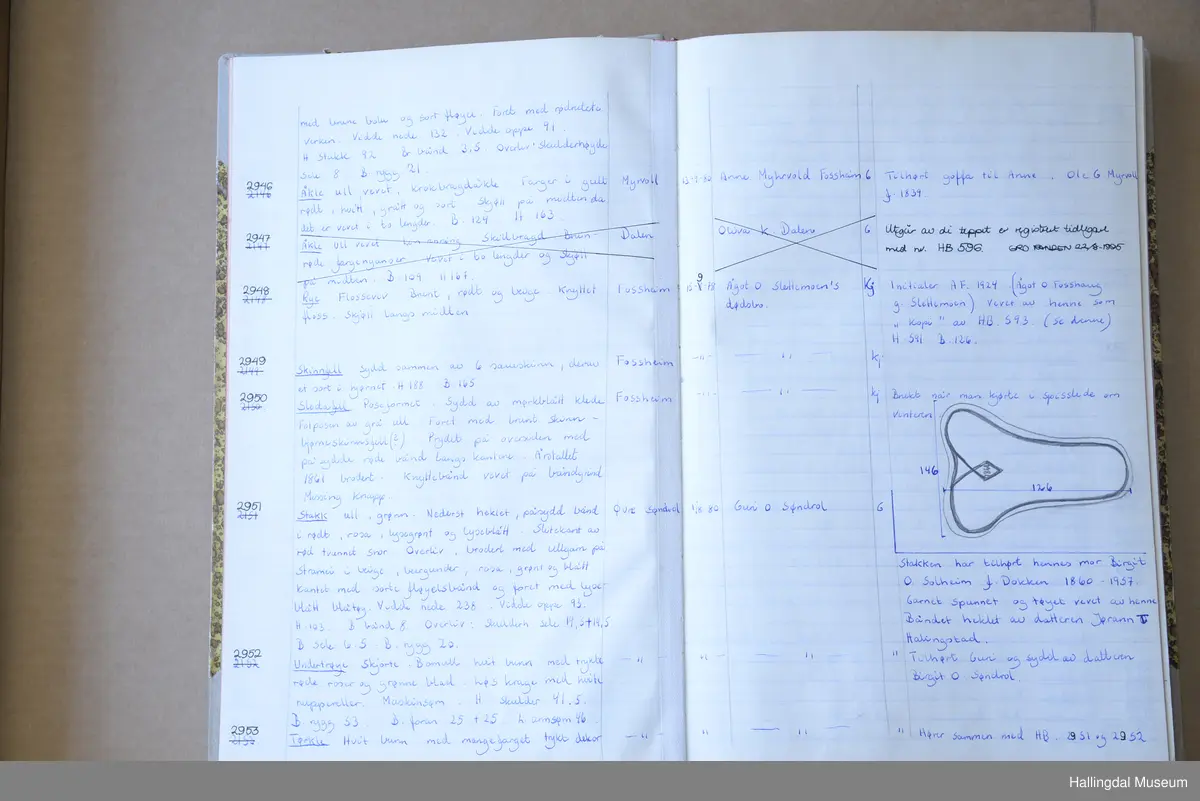 med brune boler og sort fløyel. Foret med rødrutete
verken. Vidde nede 132. Vidde oppe 91.
H stakk 92 Br bånd 3,5. Overliv: Skulderhøyde
sele 8 B rygg 21.
2946 Åkle ull vevet, krokbragdåkle Farger i gult Myrvoll 13-9-80 Anne Myhrvold Fossheim G Tilhørt goffa til Anne. Ole G Myrvoll
2146 rødt, hvitt, grått og sort Skjøll på midten da f. 1839.
det er vevet i to lengder. B. 124 H 163.
2947 Åkle ull vevet Skillbragd Brun- Dalen Olivia K. Dalens G Utgår av di teppet er registrert tidlegare
røde fargenyanser vevet i to lengder og skjøll med nr. HB 596. GRO 22/8-1995
på midten. B 104 H 167.
2948 Rye Flossevev Brunt, rødt og beige Knyttet Fossheim Ågot O Slettemoen's Kj Initialer A F. 1924 (Ågot O Fosshaug
floss. Skjøll langs midten dødsbo. g. Slettemoen) Vevet av henne som
"Kopi" av HB 593. (Se denne)
H 591 B 126.
2949 Skinnfell Sydd sammen av 6 saueskinn, derav Fossheim -"- — " — Kj
et sort i hjørnet H 188 B 165
2950 Sledefell Poseformet. Sydd av mørkblått klede Fossheim -"- — " — Kj Brukt når man kjørte i spisslede om
2150 Fotposen av grå ull Foret med brunt skinn - vinteren
bjørneskinnsfell(?) Prydet på oversiden med
påsydde røde bånd langs kantene. Årstallet
146
1861 brodert. Knyttebånd vevet på båndgrind
126
Messing knapp.
2951 Stakk ull, grønn. Nederst heklet, påsydd bånd Øvre Søndrol 1/8.80 Guri O Søndrol G
2151 i rødt, rosa, lysegrønt og lyseblått. Slitekant av
rød tvunnet snor Overliv, brodert med Ullgarn på
Stramei i beige, burgunder, rosa, grønt og blått
Kantet med sorte fløyelsbånd og foret med lyse-
blått blåtøy. Vidde nede 238. Vidde oppe 95.
H. 103. B bånd 8 Overliv: Skulderh sele 19,5+19,5
B sele 6.5 B. rygg 20.
Stakken har tilhørt hennes mor Birgit
O. Solheim f. Dokken 1860 - 1937.
Garnet spunnet og tøyet vevet av henne
Båndet heklet av datteren Jørann T
Halingstad.
2952 Undertrøye Skjorte. Bomull hvit bunn med trykte -"- " — " — " Tilhørt Guri og sydd av datteren
2152 røde roser og grønne blad. Løs krage med hvite Birgit O Søndrol.
nuppereller. Maskinsøm. H skulder 41,5.
B. rygg 53. B. foran 25 + 25. L. armsøm 46.
2953 Tørkle Hvit bunn med mangefarget trykt dekor -"- " — " — " Hører sammen med HB. 2951 og 2952
Hallingdal Museum